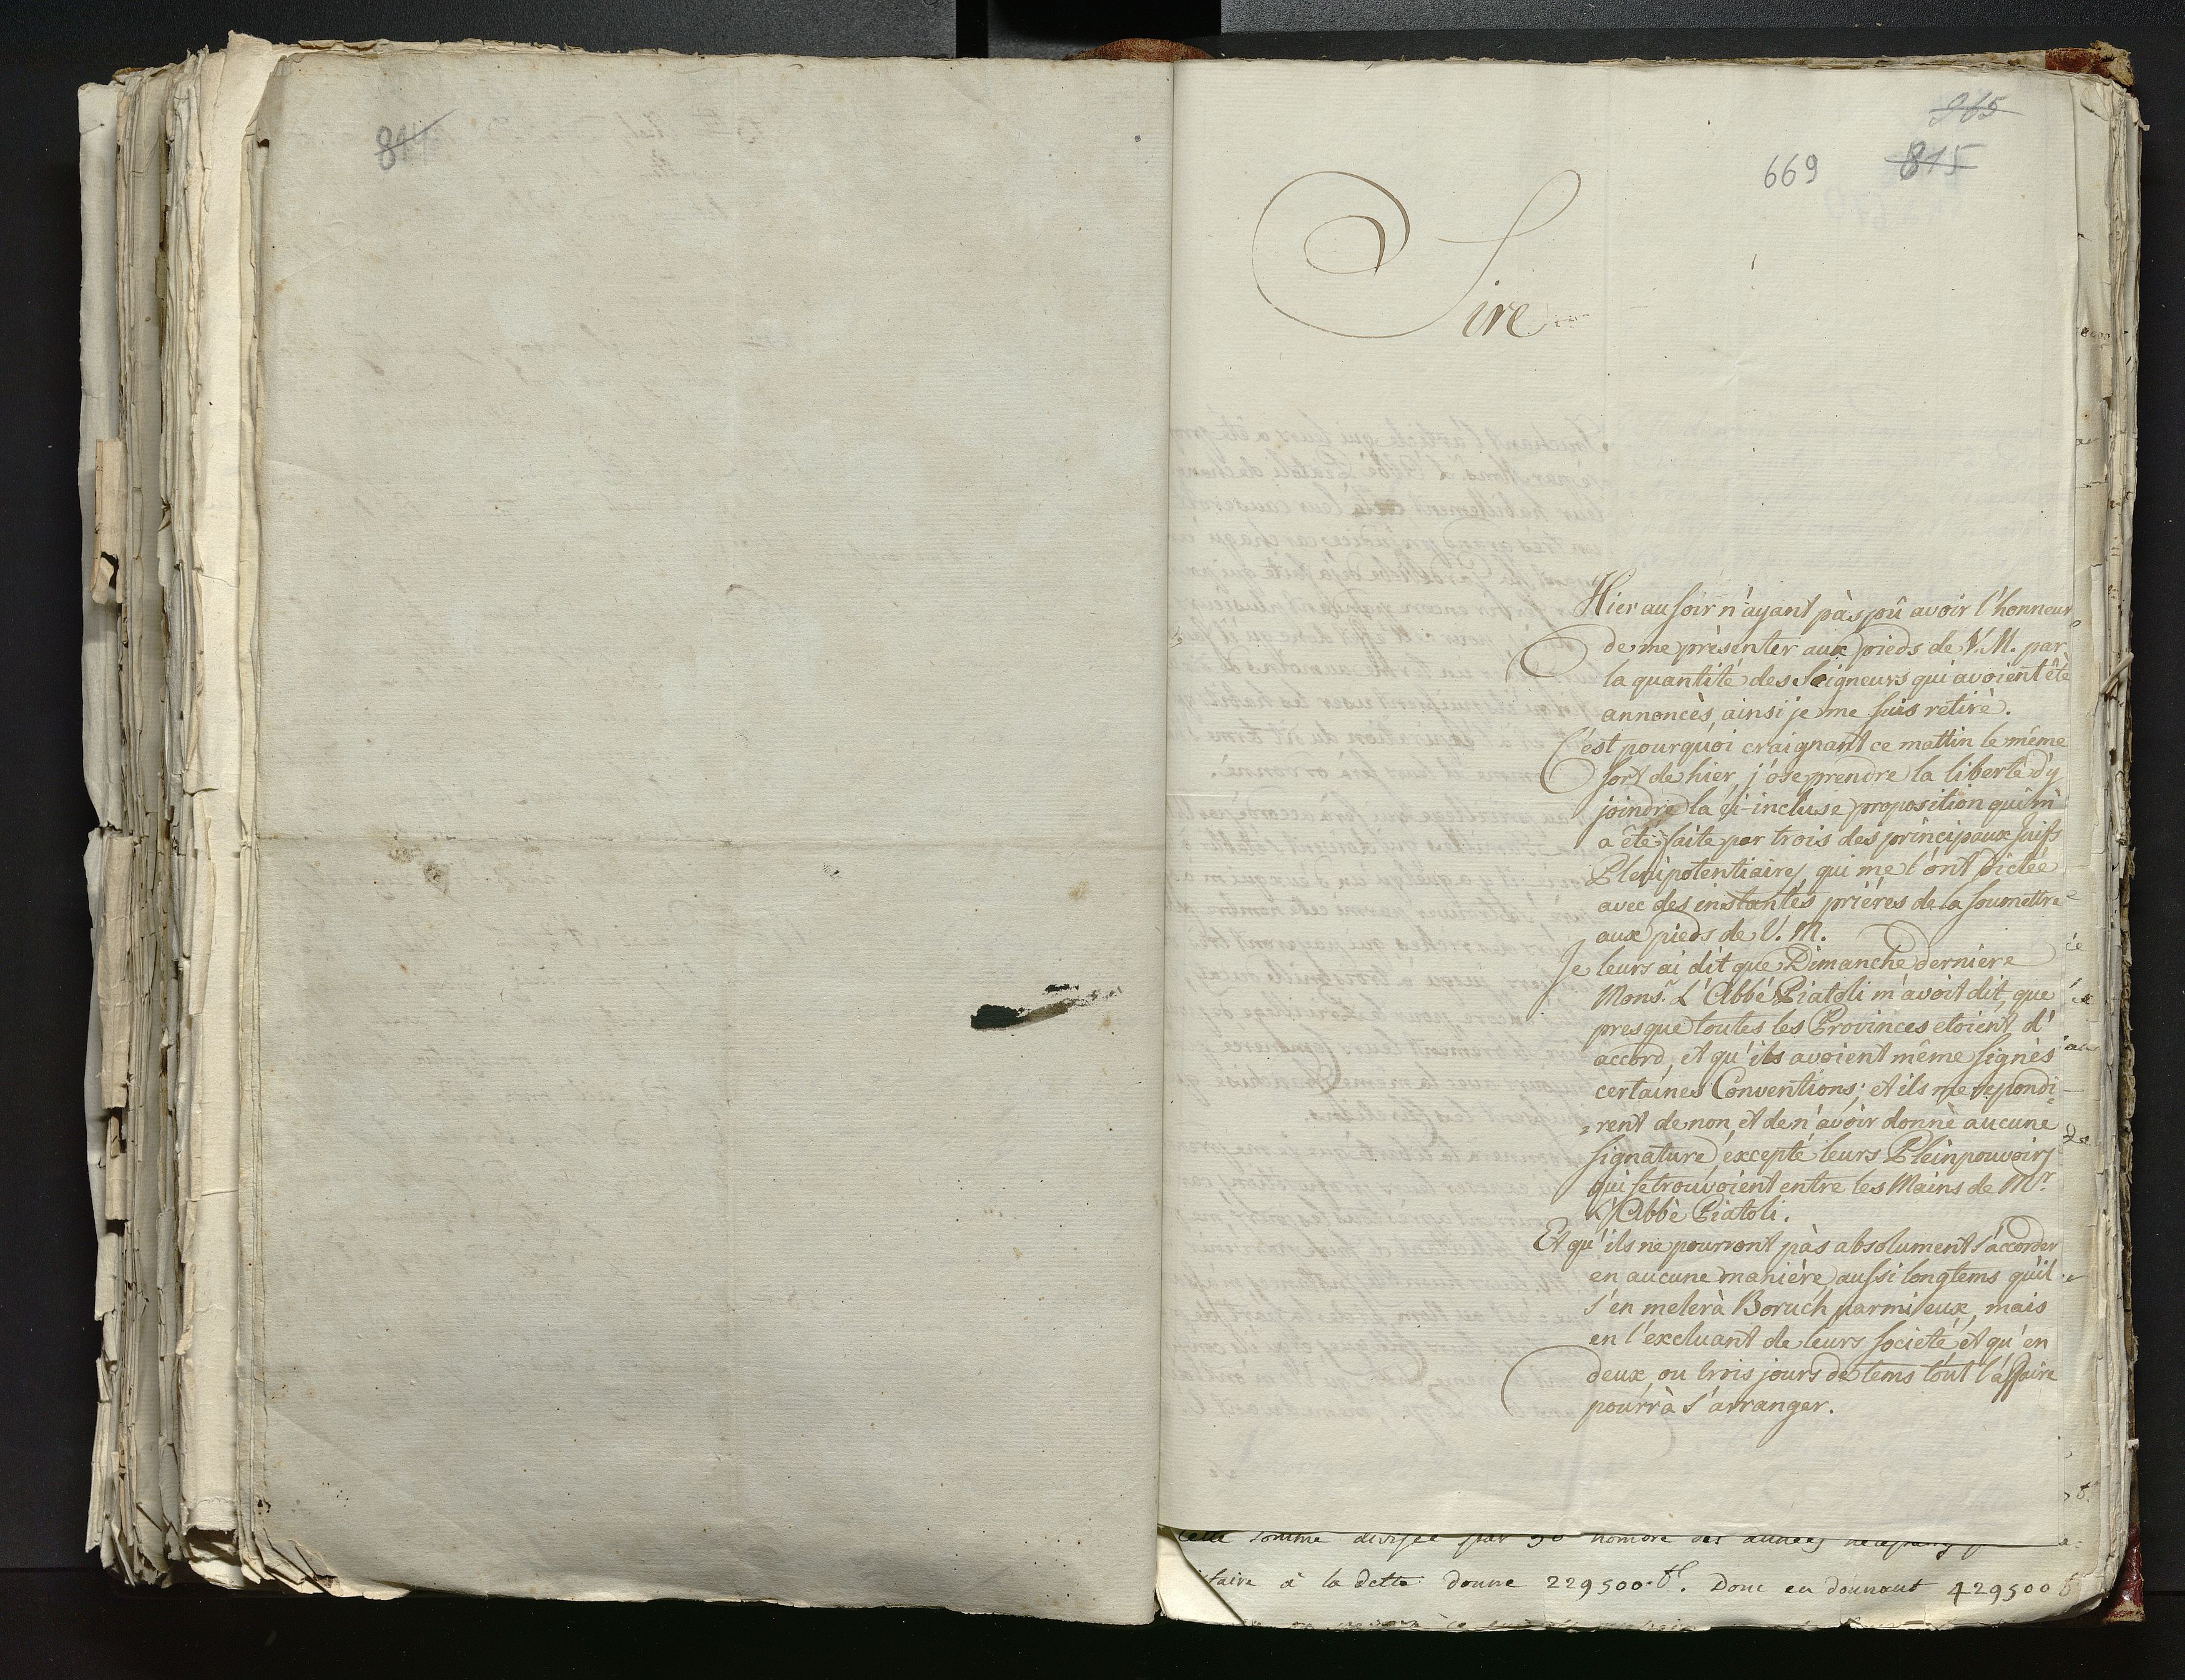 814
965
669 815
Sire
Hier au soir n'ayant pàs pû avoir l'honneur
de me prèsenter aux pieds de V. M. par
la quantité des Seigneurs qui avoient étè
annoncès, ainsi je me suis retirè.
C'est pourquoi craignant ce mattin le même
sort de hier, j'ose prendre la liberté d'y
joindre la ci-incluse proposition qui m'
a êtè faite par trois des principaux Juifs
Plenipotentiaires, qui me l'ont dictée
avec des instantes prières de la soumettre
aux pieds de V. M.
Je leurs ai dit que Dimanche derniere
Mons.r L'Abbé Piatoli m'avoit dit, que
presque toutes les Provinces etoient d'
accord, et qu'ils avoient même signès
certaines Conventions; et ils me repondi=
=rent de non, et de n'avoir donnè aucune
signature, excepté leurs Pleinpouvoirs
qui se trouvoient entre les Mains de M.r
L'Abbè Piatoli.
Et qu'ils ne pourront pàs absolument s'accorder
en aucune manière aussi longtems qu'il
s'en melerà Boruch parmi eux, mais
en l'excluant de leurs societé et qu'en
deux, ou trois jours de tems tout l'affaire
pourrà s'arranger.
Cette somme divisée par 50 nombre des années
à la dette donne 229500 fl. Donc en donnant 429500